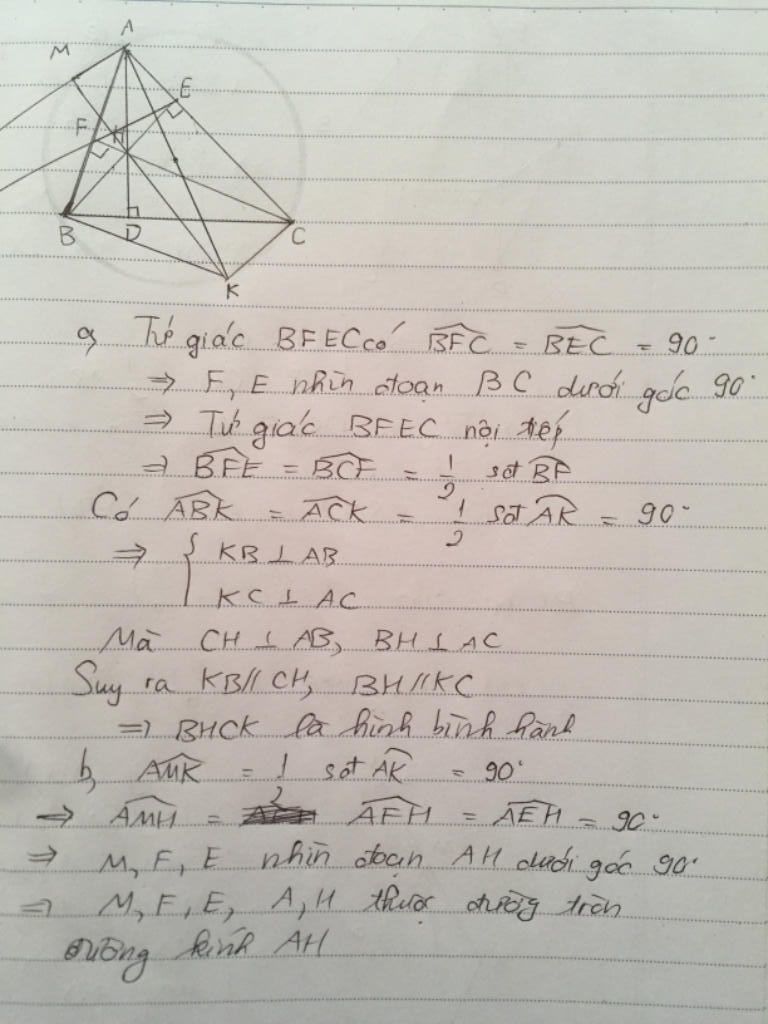 A
M
E
F
H
B
D
C
K
a, Tứ giác BFEC có \widehat{BFC} = \widehat{BEC} = 90°
⇒ F, E nhìn đoạn BC dưới góc 90°
⇒ Tứ giác BFEC nội tiếp
⇒ \widehat{BFE} = \widehat{BCF} = 1/2 sđ \widehat{BF}
Có \widehat{ABK} = \widehat{ACK} = 1/2 sđ \widehat{AK} = 90°
⇒ { KB ⊥ AB
KC ⊥ AC
Mà CH ⊥ AB, BH ⊥ AC
Suy ra KB // CH, BH // KC
⇒ BHCK là hình bình hành
b, \widehat{AMK} = 1/2 sđ \widehat{AK} = 90°
⇒ \widehat{AMH} = \widehat{AFH} = \widehat{AEH} = 90°
⇒ M, F, E nhìn đoạn AH dưới góc 90°
⇒ M, F, E, A, H thuộc đường tròn
đường kính AH